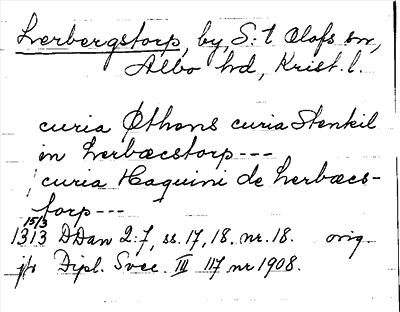 Lerbergstorp, by, S:t Olofs sn,
Albo hd, Krist. l.
curia Øthens curia Stenkil
in Lerbæcstorp ---
curia Haquini de Lerbæcs-
torp ---
15/3
1313 DDan 2:7, ss. 17, 18. nr. 18. orig
jfr Dipl. Svec. III 117 nr 1908.